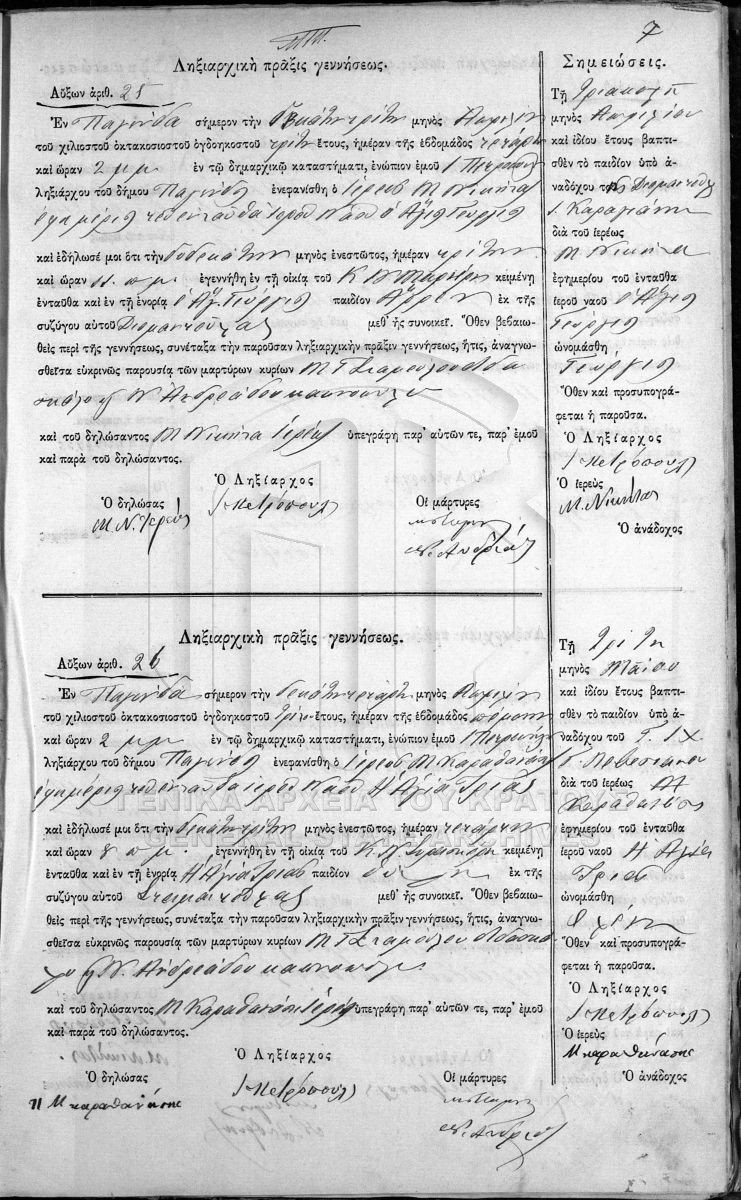 7
Ληξιαρχικὴ πρᾶξις γεννήσεως.
Αὔξων ἀριθ. 25
Ἐν Παγώνδα σήμερον τὴν μηνὸς Ἀπριλίου
τοῦ χιλιοστοῦ ὀκτακοσιοστοῦ ὀγδοηκοστοῦ τρίτου ἔτους, ἡμέραν τῆς ἑβδομάδος τετάρτην
καὶ ὥραν 2 μ μ ἐν τῷ δημαρχικῷ καταστήματι, ἐνώπιον ἐμοῦ Ι Πετροπούλου
ληξιάρχου τοῦ δήμου ἐνεφανίσθη ὁ Ἱερεὺς Μ Νικήτας
ἐφημέριος τοῦ ἐνταῦθα ἱεροῦ Ναοῦ ὁ Ἅγιος Γεώργιος
καὶ ἐδήλωσέ μοι ὅτι τὴν δωδεκάτην μηνὸς ἐνεστῶτος, ἡμέραν τρίτην
καὶ ὥραν 11 π μ. ἐγεννήθη ἐν τῇ οἰκίᾳ τοῦ Κ κειμένῃ
ἐνταῦθα καὶ ἐν τῇ ἐνορίᾳ ὁ Ἅγ. Γεώργιος παιδίον ἄρρεν ἐκ τῆς
συζύγου αὐτοῦ Διαμαντούλας μεθ' ἧς συνοικεῖ. Ὅθεν βεβαιω-
θεὶς περὶ τῆς γεννήσεως, συνέταξα τὴν παροῦσαν ληξιαρχικὴν πρᾶξιν γεννήσεως, ἥτις, ἀναγνω-
σθεῖσα εὐκρινῶς παρουσίᾳ τῶν μαρτύρων κυρίων Μ Γ Σταμούλου διδα
σκάλου Ν. Ἀνδρεάδου καπνοπώλου
καὶ τοῦ δηλώσαντος Μ Νικήτα Ἱερέως ὑπεγράφη παρ' αὐτῶν τε, παρ' ἐμοῦ
καὶ παρὰ τοῦ δηλώσαντος.
Ὁ Ληξίαρχος
Ι Πετρόπουλος
Ὁ δηλώσας
Μ. Ν. Ἱερεύς
Οἱ μάρτυρες
Ν. Ἀνδρεάδ
Σημειώσεις.
Τῇ Τριακοστῇ
μηνὸς Ἀπριλίου
καὶ ἰδίου ἔτους βαπτι-
σθὲν τὸ παιδίον ὑπὸ ἀ-
ναδόχου τῆς Διαμαντούλας
Ι. Καραγιάννη
διὰ τοῦ ἱερέως
Μ Νικήτα
ἐφημερίου τοῦ ἐνταῦθα
ἱεροῦ ναοῦ ὁ Ἅγιος
Γεώργιος
ὠνομάσθη
Γεώργιος
Ὅθεν καὶ προσυπογρά-
φεται ἡ παροῦσα.
Ὁ Ληξίαρχος
Ι Πετρόπουλ
Ὁ ἱερεὺς
Μ. Νικήτας
Ὁ ἀνάδοχος
Ληξιαρχικὴ πρᾶξις γεννήσεως.
Αὔξων ἀριθ. 26
Ἐν Παγώνδα σήμερον τὴν δεκάτην τετάρτην μηνὸς Ἀπριλίου
τοῦ χιλιοστοῦ ὀκτακοσιοστοῦ ὀγδοηκοστοῦ τρίτου ἔτους, ἡμέραν τῆς ἑβδομάδος πέμπτην
καὶ ὥραν 2 μ μ ἐν τῷ δημαρχικῷ καταστήματι, ἐνώπιον ἐμοῦ Ι Πετροπούλου
ληξιάρχου τοῦ δήμου ἐνεφανίσθη ὁ Ἱερεὺς Μ Καραθανάσης
ἐφημέριος τοῦ ἐνταῦθα ἱεροῦ Ναοῦ Ἡ Ἁγία Τριάς
καὶ ἐδήλωσέ μοι ὅτι τὴν δεκάτην τρίτην μηνὸς ἐνεστῶτος, ἡμέραν τετάρτην
καὶ ὥραν 8 π μ. ἐγεννήθη ἐν τῇ οἰκίᾳ τοῦ Κ. Ν. κειμένῃ
ἐνταῦθα καὶ ἐν τῇ ἐνορίᾳ Ἡ Ἁγία Τριάς παιδίον θῆλυ ἐκ τῆς
συζύγου αὐτοῦ Σταμαντούλας μεθ' ἧς συνοικεῖ. Ὅθεν βεβαιω-
θεὶς περὶ τῆς γεννήσεως, συνέταξα τὴν παροῦσαν ληξιαρχικὴν πρᾶξιν γεννήσεως, ἥτις, ἀναγνω-
σθεῖσα εὐκρινῶς παρουσίᾳ τῶν μαρτύρων κυρίων Μ Γ Σταμούλου διδασκά
λου Ν. Ἀνδρεάδου καπνοπώλου
καὶ τοῦ δηλώσαντος Μ Καραθανάση Ἱερέως ὑπεγράφη παρ' αὐτῶν τε, παρ' ἐμοῦ
καὶ παρὰ τοῦ δηλώσαντος.
Ὁ Ληξίαρχος
Ι Πετρόπουλ
Ὁ δηλώσας
Μ καραθανάσης
Οἱ μάρτυρες
Ν. Ἀνδρεάδ
Τῇ Τρίτη
μηνὸς Μαΐου
καὶ ἰδίου ἔτους βαπτι-
σθὲν τὸ παιδίον ὑπὸ ἀ-
ναδόχου τοῦ Γ. Ι Χ
διὰ τοῦ ἱερέως Μ
Καραθανάση
ἐφημερίου τοῦ ἐνταῦθα
ἱεροῦ ναοῦ Ἡ Ἁγία
Τριάς
ὠνομάσθη
Ὅθεν καὶ προσυπογρά-
φεται ἡ παροῦσα.
Ὁ Ληξίαρχος
Ι Πετρόπουλ
Ὁ ἱερεὺς
Μ καραθανάσης
Ὁ ἀνάδοχος
ΓΕΝΙΚΑ ΑΡΧΕΙΑ ΤΟΥ ΚΡΑΤ